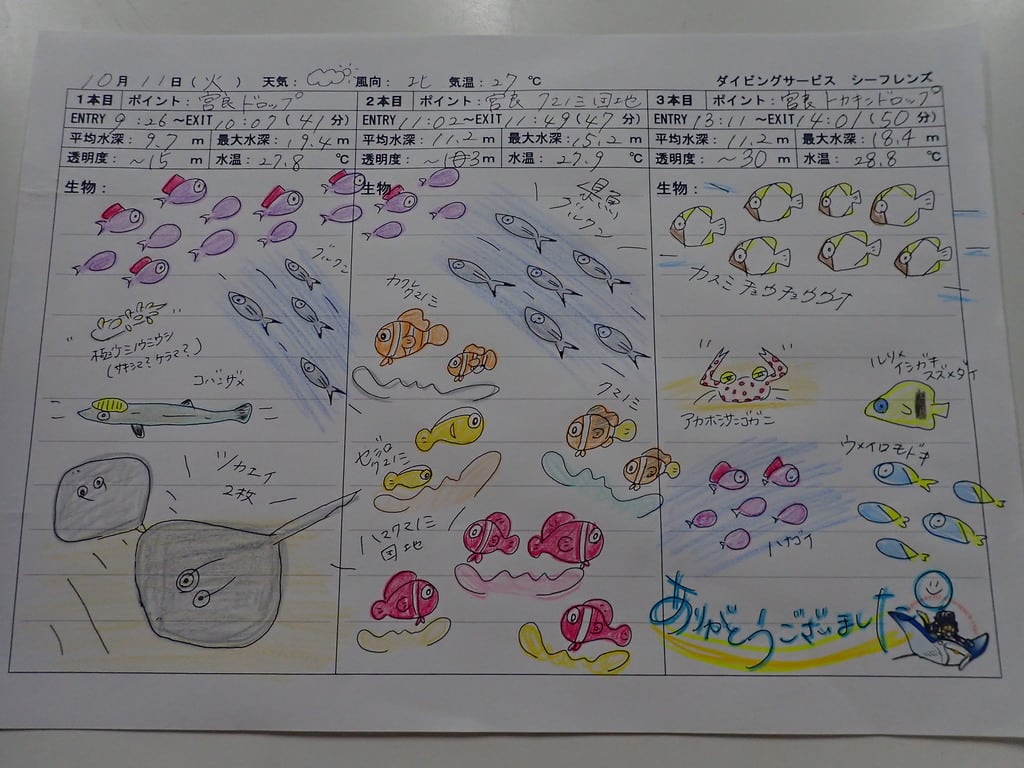 10月11日(火) 天気: 風向: 北 気温: 27℃ ダイビングサービス シーフレンズ
1本目 ポイント: 宮良ドロップ
ENTRY 9:26~EXIT 10:07(41分)
平均水深: 9.7m 最大水深: 19.4m
透明度: ~15m 水温: 27.8℃
生物:
グルクン
"極少ケミノウミウシ"
コバンザメ
ツカエイ
2枚
2本目 ポイント: 宮良 クマノミ団地
ENTRY 11:02~EXIT 11:49(47分)
平均水深: 11.2m 最大水深: 15.2m
水温: 27.9℃
生物:
グルクン
カクレ
クマノミ
クマノミ
セジロ
クマノミ
ハマクマノミ
団地
3本目 ポイント: 宮良 トカキンドロップ
ENTRY 13:11~EXIT 14:01(50分)
平均水深: 11.2m 最大水深: 18.4m
透明度: ~30m 水温: 28.8℃
生物:
カスミチョウチョウウオ
アカホシサンゴガニ
ルリメ
イシガキ
スズメダイ
ウメイロモドキ
ハナゴイ
ありがとうございました